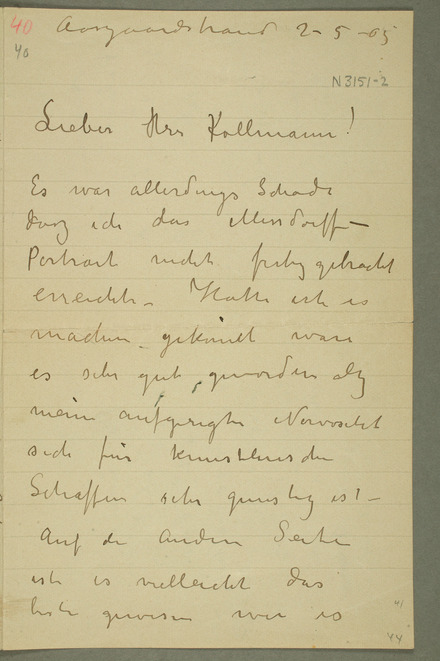 40
40
Aasgaardstrand 2-5-05
N 3151-2
Lieber Herr Kollmann!
Es war allerdings Schade
das ich das
Portrait nicht fertig gebracht
Hatte ich es
machen gekönnt ware
es sehr gut geworden
meine aufgeregte Nervositet
sich für kunstlerischen
Schaffen sehr gunstig ist –
Auf der anderen Seite
ist es vielleicht das
beste gewesen wie es
41
44